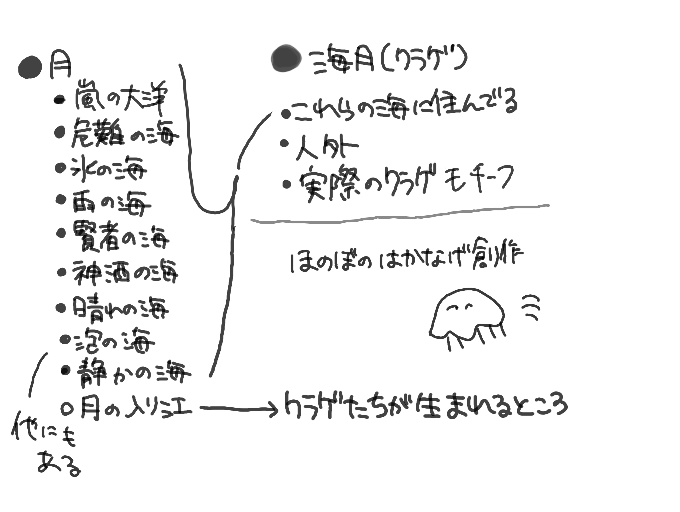 ●月
・嵐の大洋
・危難の海
・氷の海
・雨の海
・賢者の海
・神酒の海
・晴れの海
・泡の海
・静かの海
○月の入り江→クラゲたちが生まれるところ
他にも
ある
●海月(クラゲ)
・これらの海に住んでる
・人外
・実際のクラゲモチーフ
ほのぼのはかなげ創作